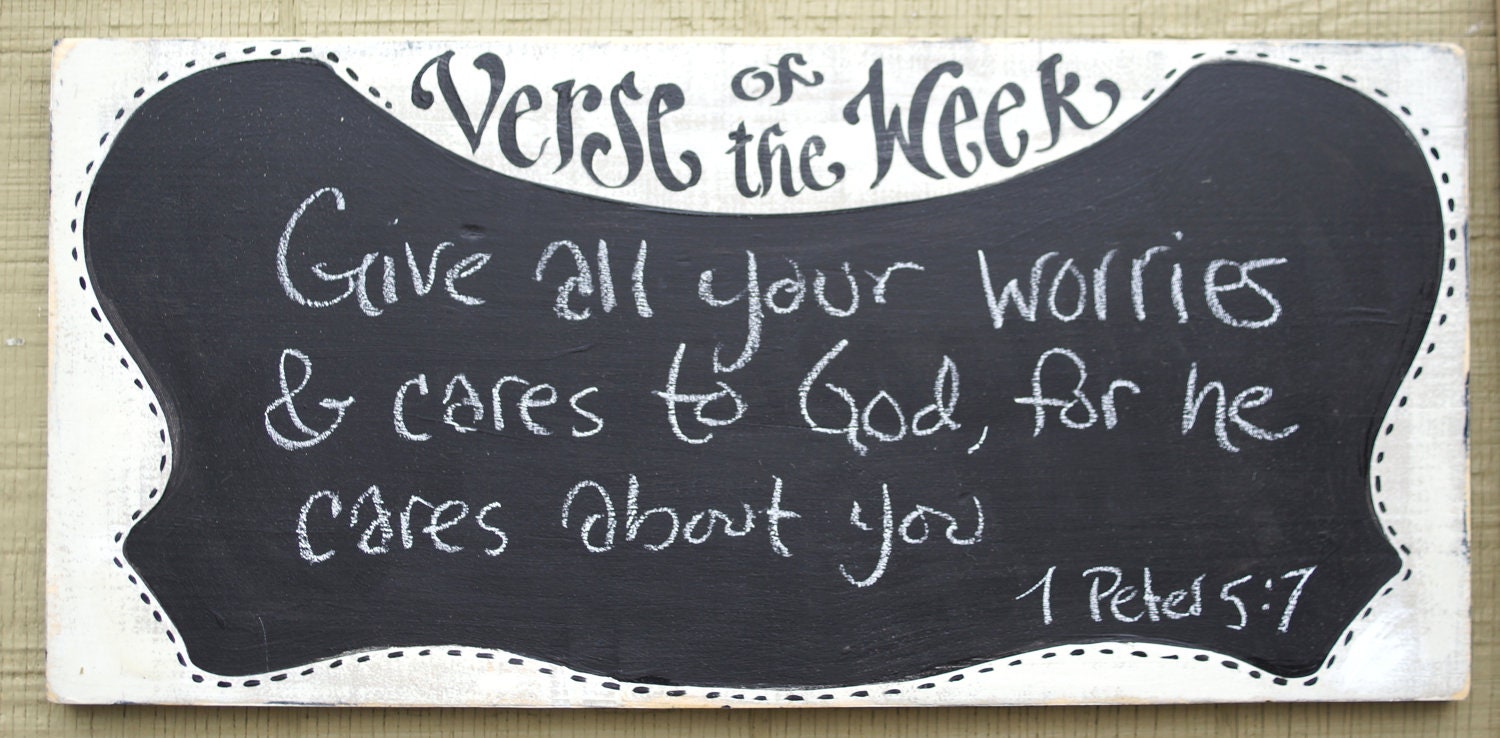 Verse of the Week
Give all your worries
& cares to God, for he
cares about you
1 Peter 5:7